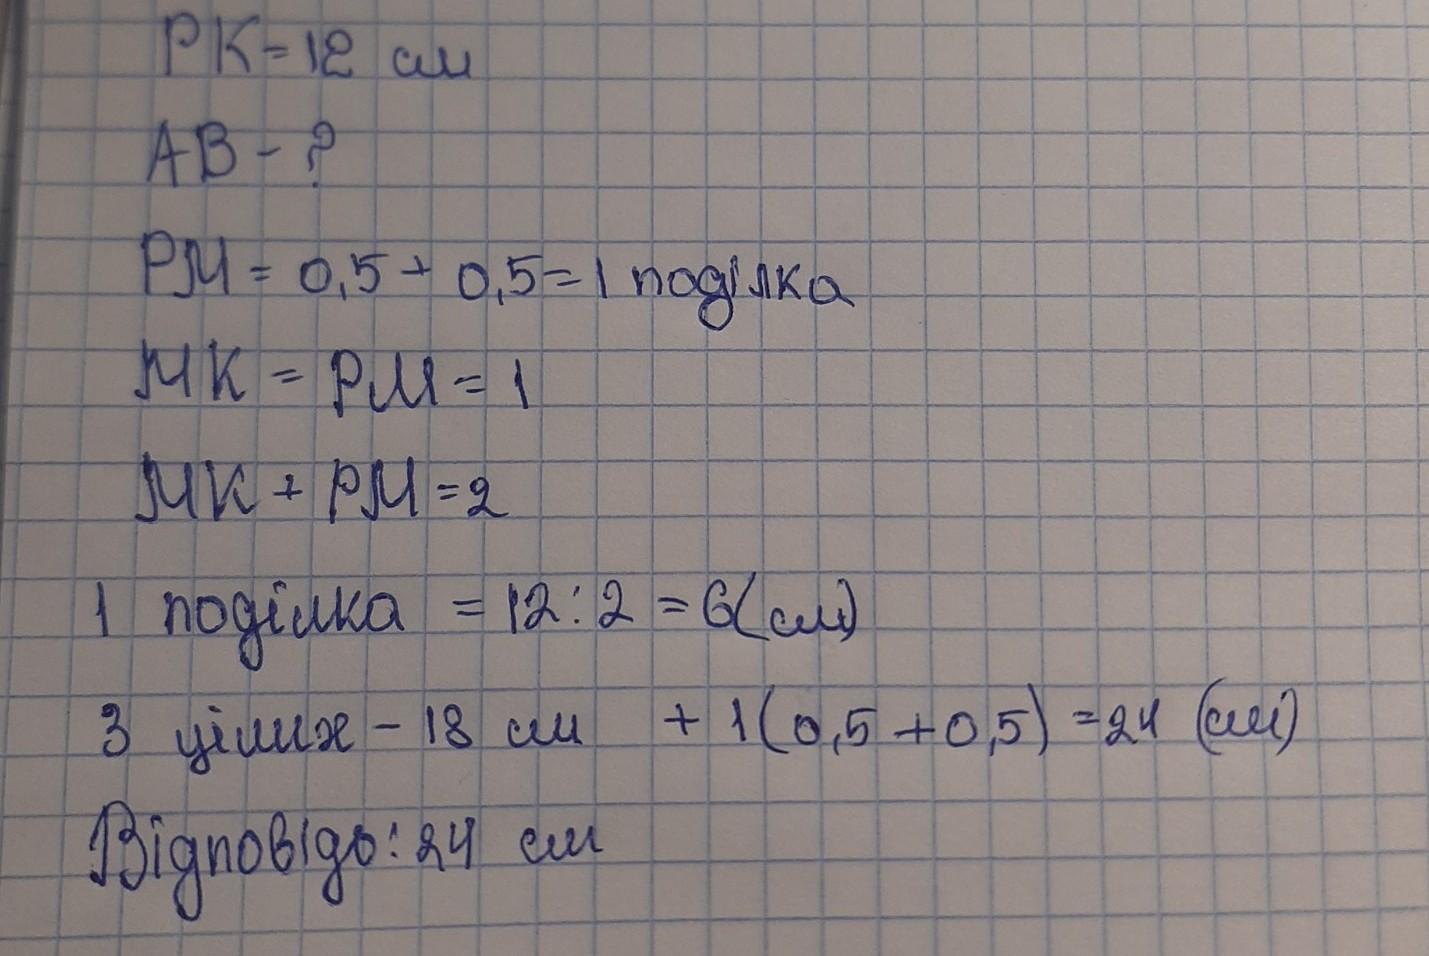 РК = 12 см
АВ - ?
РМ = 0,5 + 0,5 = 1 поділка
МК = РМ = 1
МК + РМ = 2
1 поділка = 12 : 2 = 6(см)
3 цілих - 18 см + 1(0,5 + 0,5) = 24 (см)
Відповідь: 24 см